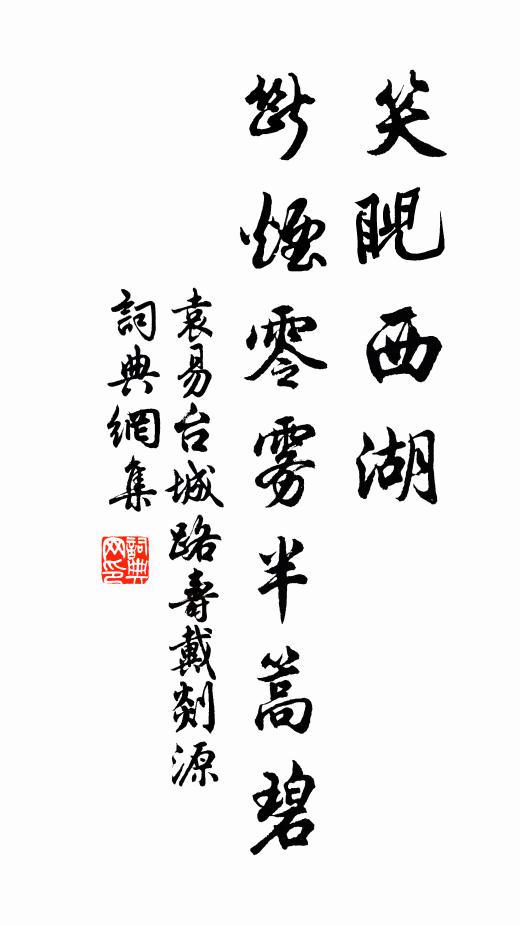 笑睨西湖
斷煙零雾半篙碧
袁易台城路壽戴剡源
詞典網集
詞典網印